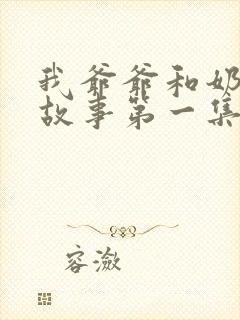 我爷爷和奶
故事第一集
容潋